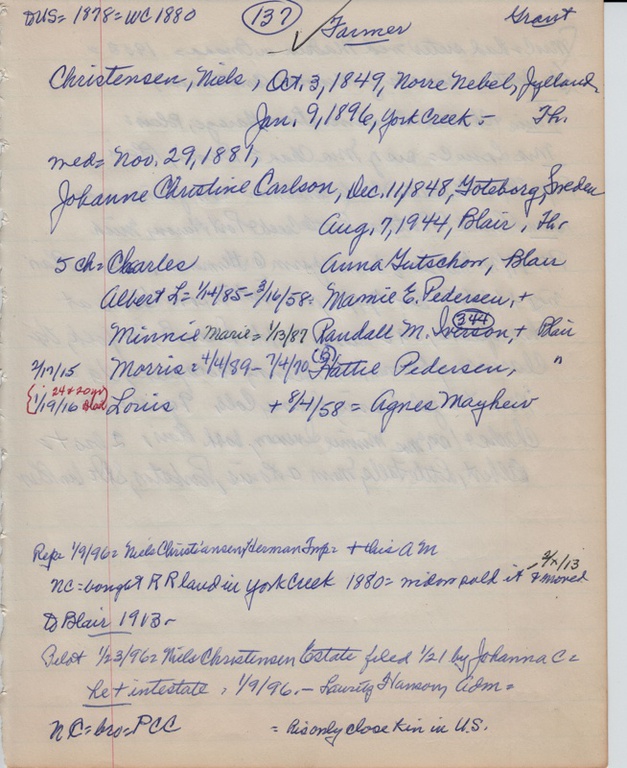 to US = 1878 = WC 1880 (137) Farmer Grant
Christensen, Niels, Oct. 3, 1849, Norre Nebel, Jylland
Jan. 9, 1896, York Creek - Th.
med = Nov. 29, 1881,
Johanne Christine Carlson, Dec. 1, 1848, Gotsborg, Sweden
Aug, 7, 1944, Blair, Thr
5 ch = Charles Anna Gutschow, Blair
Albert L = 1/14/85 - 3/16/58 = Mamie E. Pedersen, +
Minnie Marie = 1/13/87 Randall M. Iverson, + Blair
344
2/17/15 Morris = 4/4/89 - 7/4/70 (6) Hattie Pedersen, "
24 + 20 yr
1/19/16 Louis + 8/4/58 = Agnes Mayhew
Rep = 1/9/96 = Niels Christiansen, Herman Imp = + this AM
NC = bought RR land in York Creek 1880 = widow sold it & moved
2/x/13
to Blair 1913 -
Pilot 1/23/96 = Niels Christensen Estate filed 1/21 by Johanna C =
he + intestate, 1/9/96. - Lauritz Hanson, Adm =
NC = bro = PCC = his only close kin in U.S.